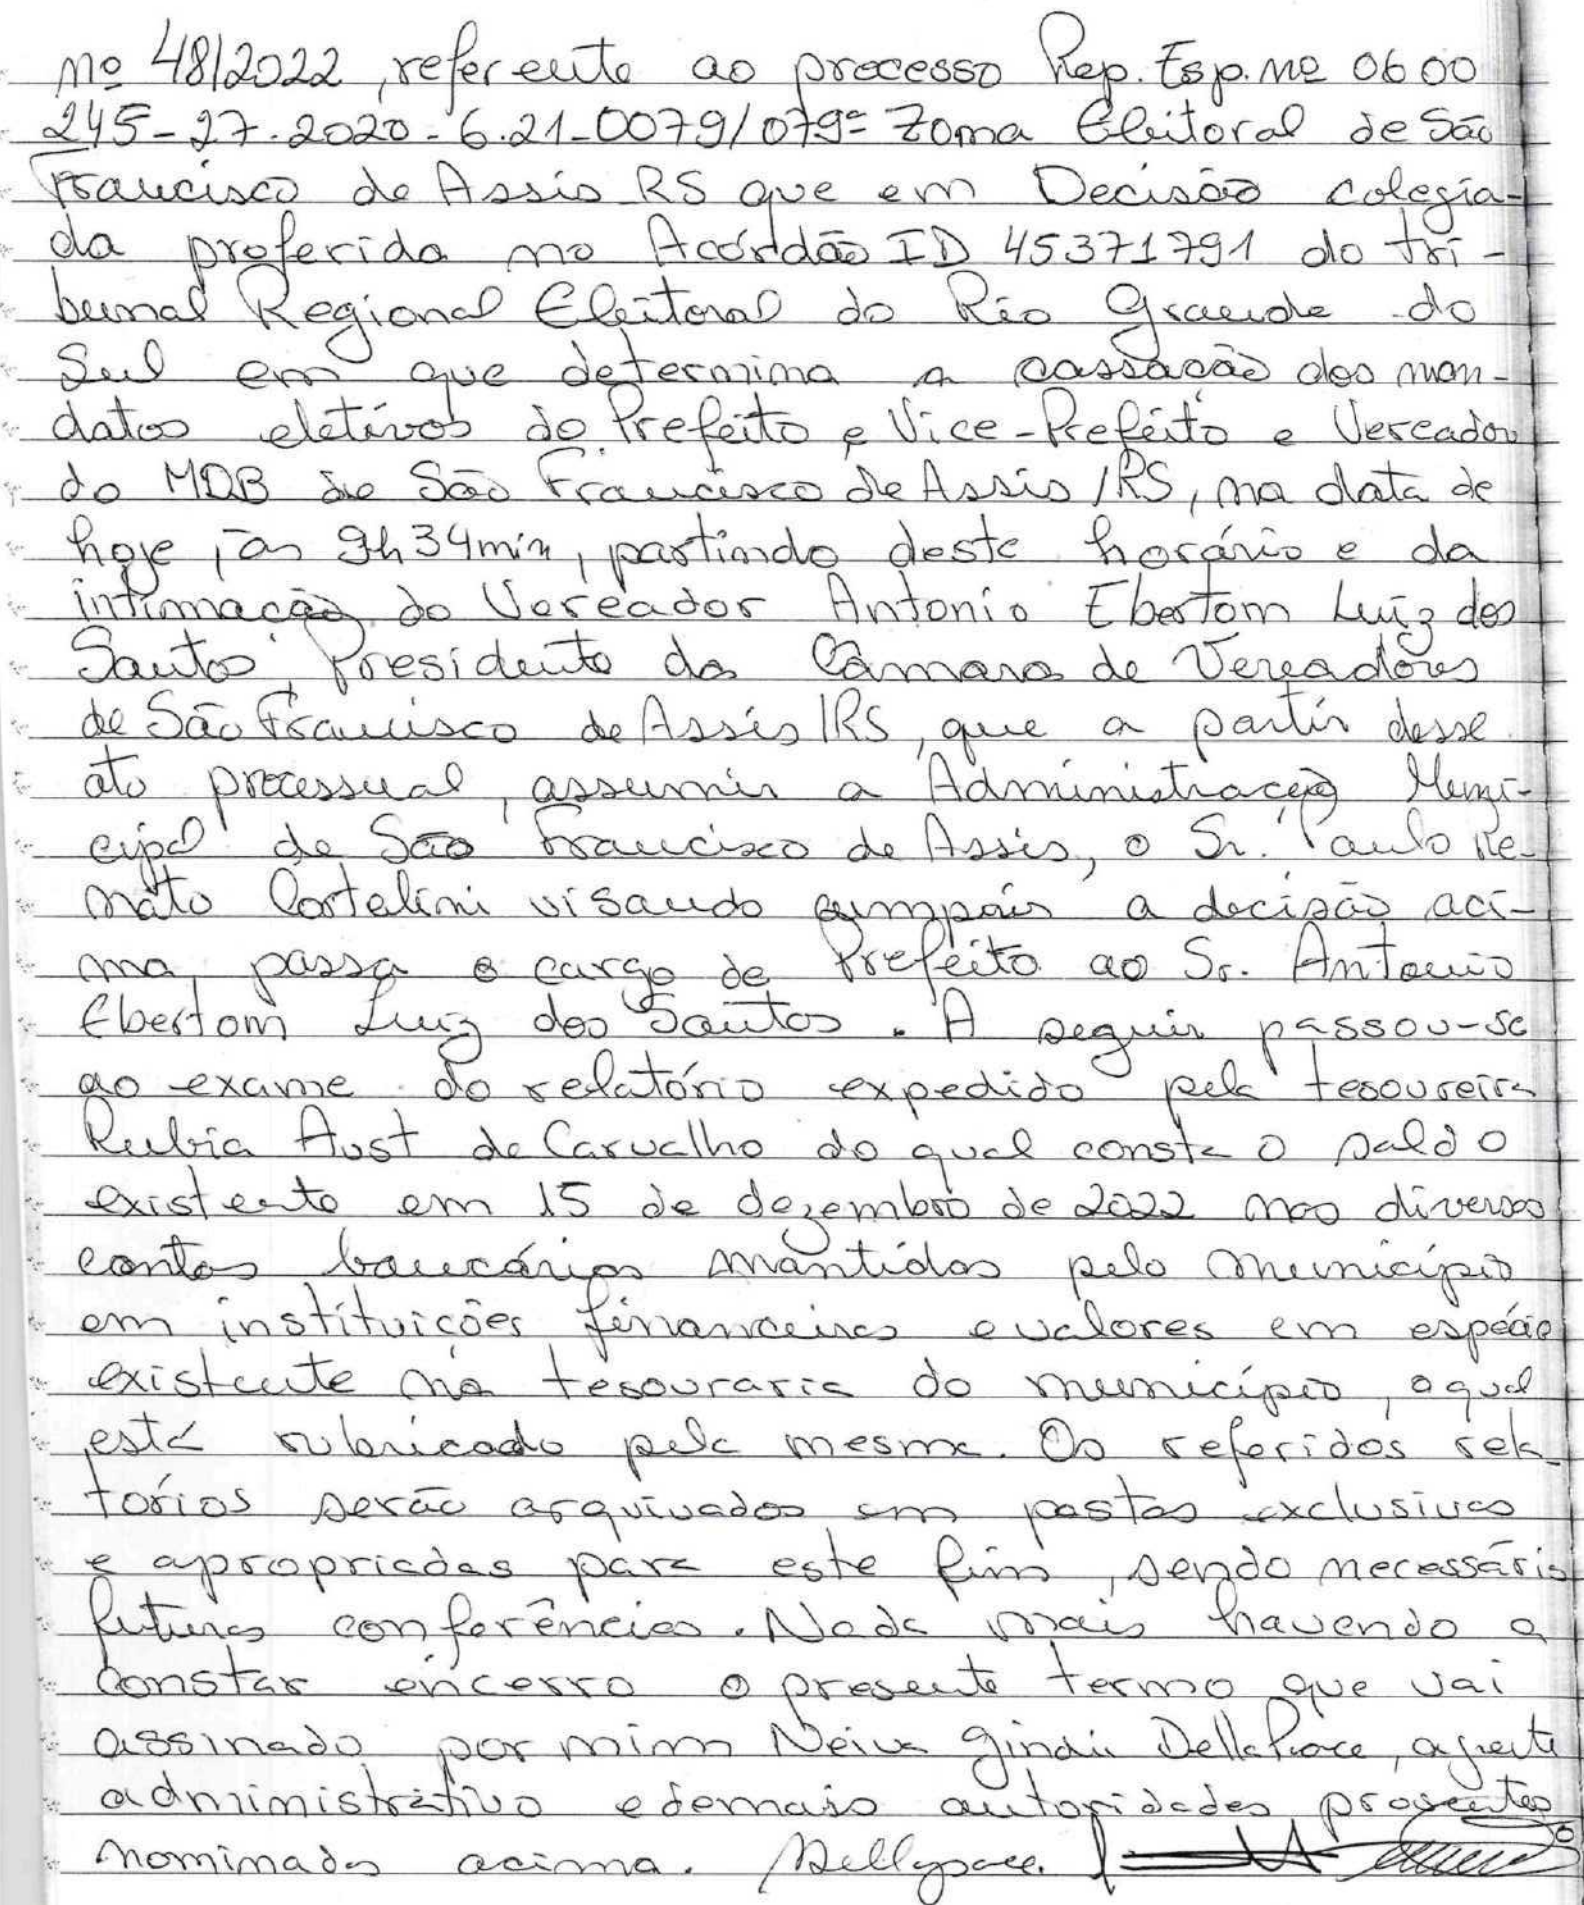 nº 48/2022, referente ao processo Rep. Esp. nº 0600
245-27.2020-6.21-0079/079ª Zona Eleitoral de São
Francisco de Assis RS que em Decisão colegia-
da proferida no Acórdão ID 45371791 do Tri-
bunal Regional Eleitoral do Rio Grande do
Sul em que determina a cassação dos man-
datos eletivos do Prefeito e Vice-Prefeito e Vereador
do MDB de São Francisco de Assis/RS, na data de
hoje, às 9h34min, partindo deste horário e da
intimação do Vereador Antonio Ebertom Luiz dos
Santos, Presidente da Câmara de Vereadores
de São Francisco de Assis/RS, que a partir desse
ato processual, assumir a Administração Muni-
cipal de São Francisco de Assis, o Sr. Paulo Re-
nato Cortelini visando cumprir a decisão aci-
ma, passa o cargo de Prefeito ao Sr. Antonio
Ebertom Luiz dos Santos. A seguir passou-se
ao exame do relatório expedido pela tesoureira
Rubia Aust de Carvalho do qual consta o saldo
existente em 15 de dezembro de 2022 nas diversas
contas bancárias mantidas pelo município
em instituições financeiras e valores em espécie
existente na tesouraria do município, o qual
está rubricado pela mesma. Os referidos rela-
tórios serão arquivados em pastas exclusivas
e apropriadas para este fim, sendo necessária
futuras conferências. Nada mais havendo a
constar encerro o presente termo que vai
assinado por mim Neiva Dellapace, agente
administrativo e demais autoridades presentes
nominados acima. Dellapace.